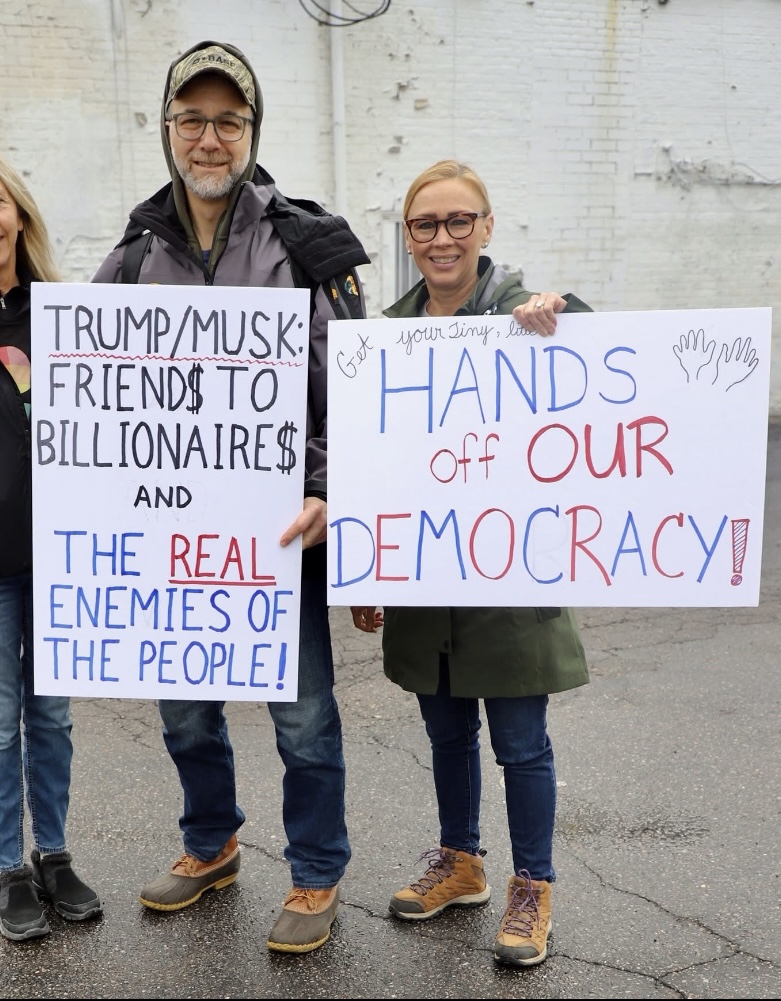 TRUMP/MUSK:
FRIEND$ TO
BILLIONAIRE$
AND
THE REAL
ENEMIES OF
THE PEOPLE!
Get your Tiny,
HANDS
off OUR
DEMOCRACY!